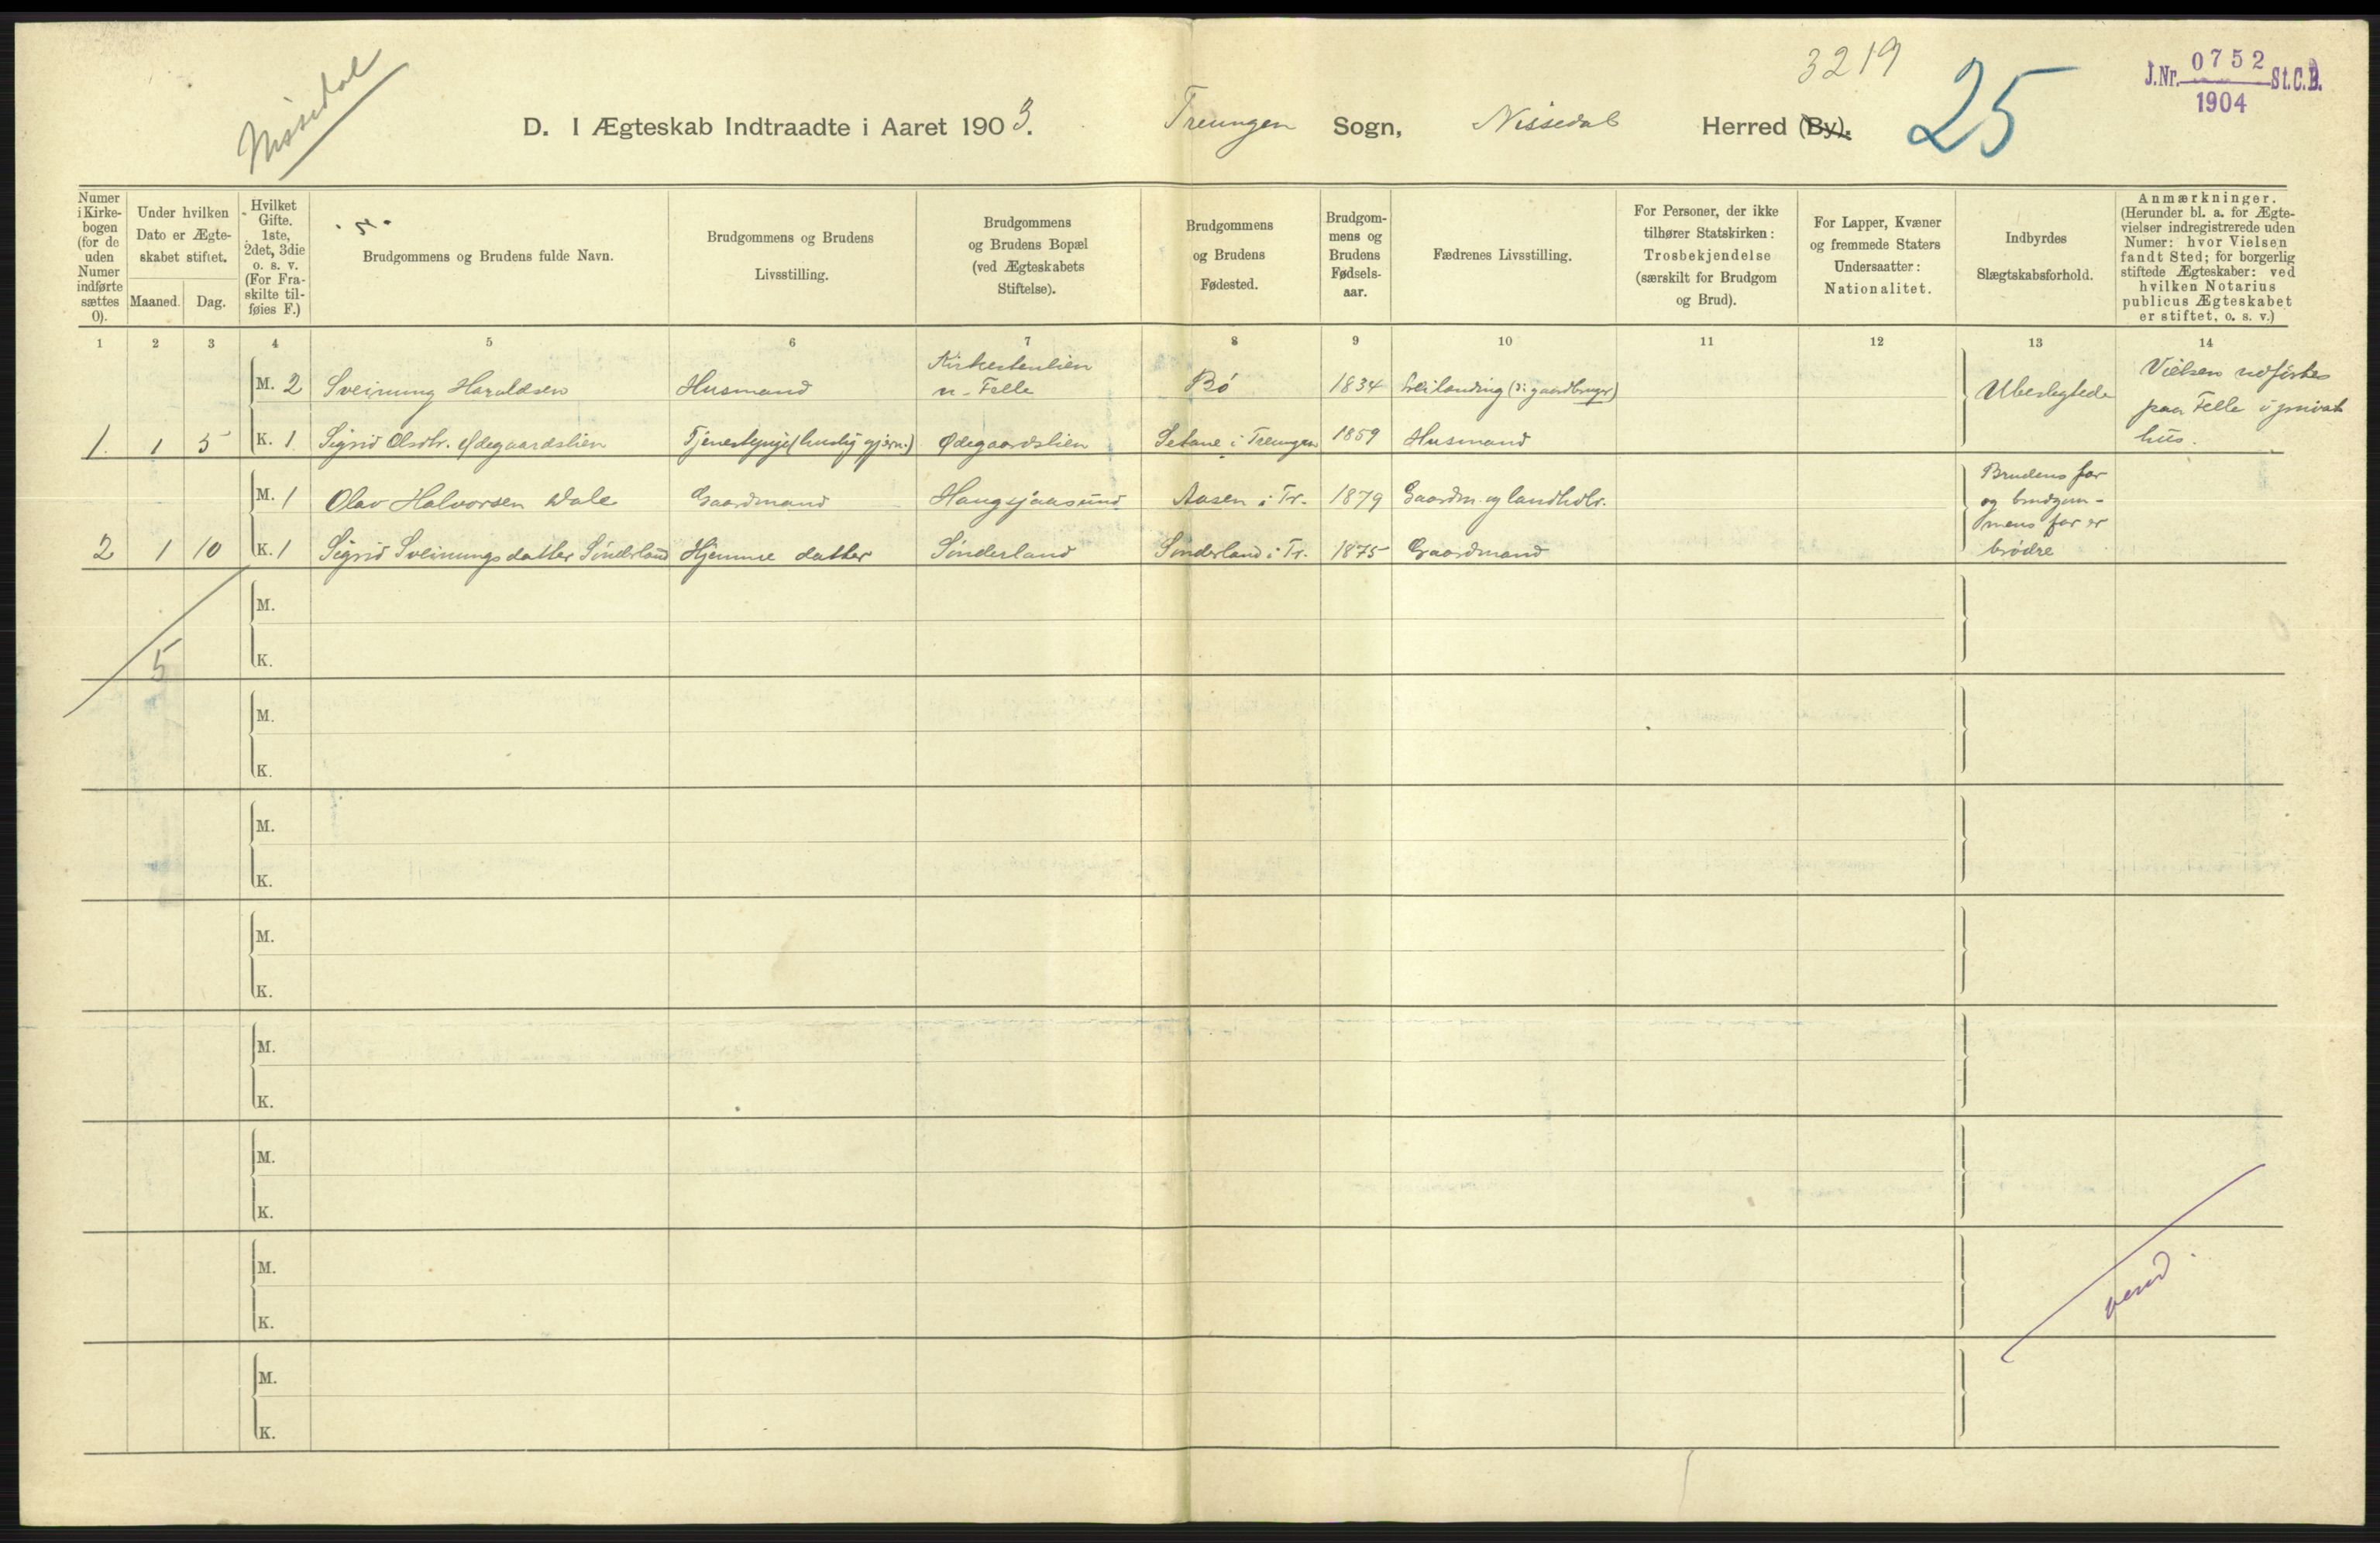 Nissedal
3219
25
J.Nr. 0752 St.C.B.
1904
D. I Ægteskab Indtraadte i Aaret 1903. Treungen Sogn, Nissedal Herred (By).
Numer i Kirkebogen (for de uden Numer indførte sættes 0).
Under hvilken Dato er Ægteskabet stiftet.
Maaned. Dag.
Hvilket Gifte. 1ste, 2det, 3die o. s. v. (For Fraskilte tilføies F.)
Brudgommens og Brudens fulde Navn.
Brudgommens og Brudens Livsstilling.
Brudgommens og Brudens Bopæl (ved Ægteskabets Stiftelse).
Brudgommens og Brudens Fødested.
Brudgommens og Brudens Fødselsaar.
Fædrenes Livsstilling.
For Personer, der ikke tilhører Statskirken: Trosbekjendelse (særskilt for Brudgom og Brud).
For Lapper, Kvæner og fremmede Staters Undersaatter: Nationalitet.
Indbyrdes Slægtskabsforhold.
Anmærkninger. (Herunder bl. a. for Ægtevielser indregistrerede uden Numer: hvor Vielsen fandt Sted; for borgerlig stiftede Ægteskaber: ved hvilken Notarius publicus Ægteskabet er stiftet, o. s. v.)
1 2 3 4 5 6 7 8 9 10 11 12 13 14
M. 2 Sveinung Haraldsen Husmand n. Felle Bö 1834 Ubeslegtede Vielsen udförtes paa Felle i privat hus.
1. 1 5 K. 1 Sigrid Olsdtr. Ødegaardslien Tjenestepige (huslig gjern.) Ødegaardslien Setane i Treungen 1859 Husmand
M. 1 Olav Halvorsen Dale Gaardmand Haugsjaasund Aasen i Tr. 1879 Gaardm. og landhdlr. Brudens far og brudgommens far er brödre
2 1 10 K. 1 Sigrid Sveinungsdatter Sönderland Hjemme datter Sönderland Sönderland i Tr. 1875 Gaardmand
5
M.
K.
M.
K.
M.
K.
M.
K.
M.
K.
M.
K.
M.
K.
M.
K.
vend.